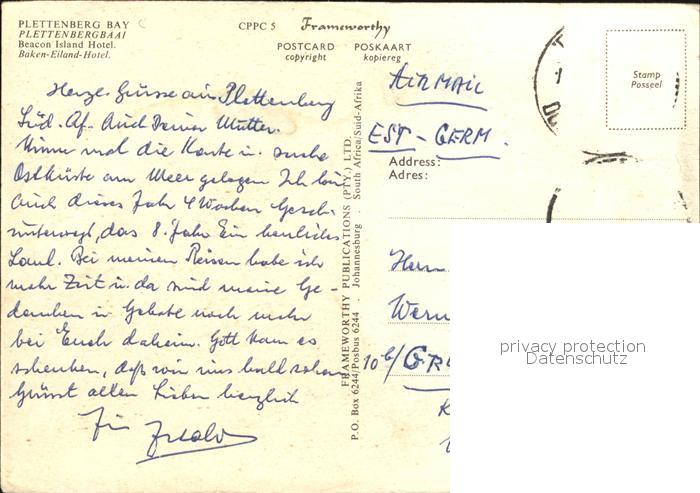 PLETTENBERG BAY
PLETTENBERGBAAI
Beacon Island Hotel.
Baken-Eiland-Hotel.
CPPC 5 Frameworthy
POSTCARD POSKAART
copyright kopiereg
Stamp
Posseel
Herzl. Grüsse aus Plettenberg
Süd. Af. Auch Deiner Mutter.
Nimm mal die Karte u. suche
Ostküste am Meer gelegen Ich bin
auch dieses Jahr 4 Wochen
unterwegs, das 8. Jahr Ein herrliches
Land. Bei meinen Reisen habe ich
mehr Zeit u. da sind meine Ge-
danken u. Gebete noch mehr
bei Euch daheim. Gott kann es
schenken, daß wir uns bald sehen
Grüsst allen Lieben herzlich
FRAMEWORTHY PUBLICATIONS (PTY.) LTD.
P.O. Box 6244/Posbus 6244 . Johannesburg . South Africa/Suid-Afrika
AIRMAIL
EST-GERM.
Address:
Adres:
Herrn
Wern
10b/
privacy protection
Datenschutz